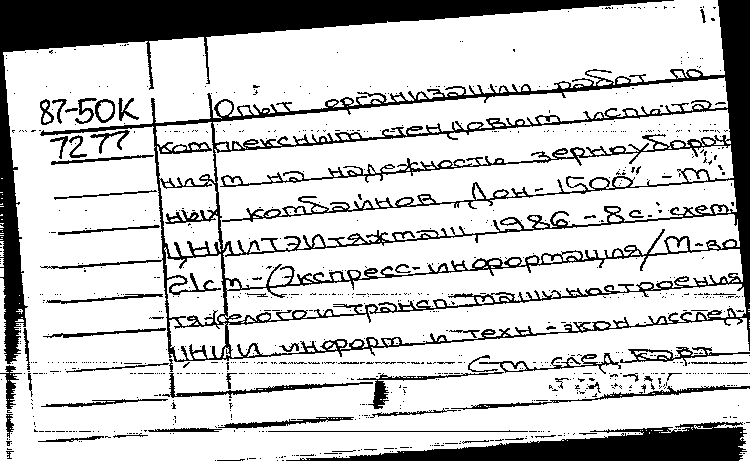 1.
87-50К
7277
Опыт организации работ по
комплексным стендовым испыта-
ниям на надежность зерноубороч
ных комбайнов „Дон-1500". - М.:
ЦНИИТЭИтяжмаш, 1986. - 8с.: схем;
21см. - (Экспресс-информация/М-во
тяжелого и трансп. машиностроения,
ЦНИИ информ и техн.-экон. исслед.;
См. след. карт